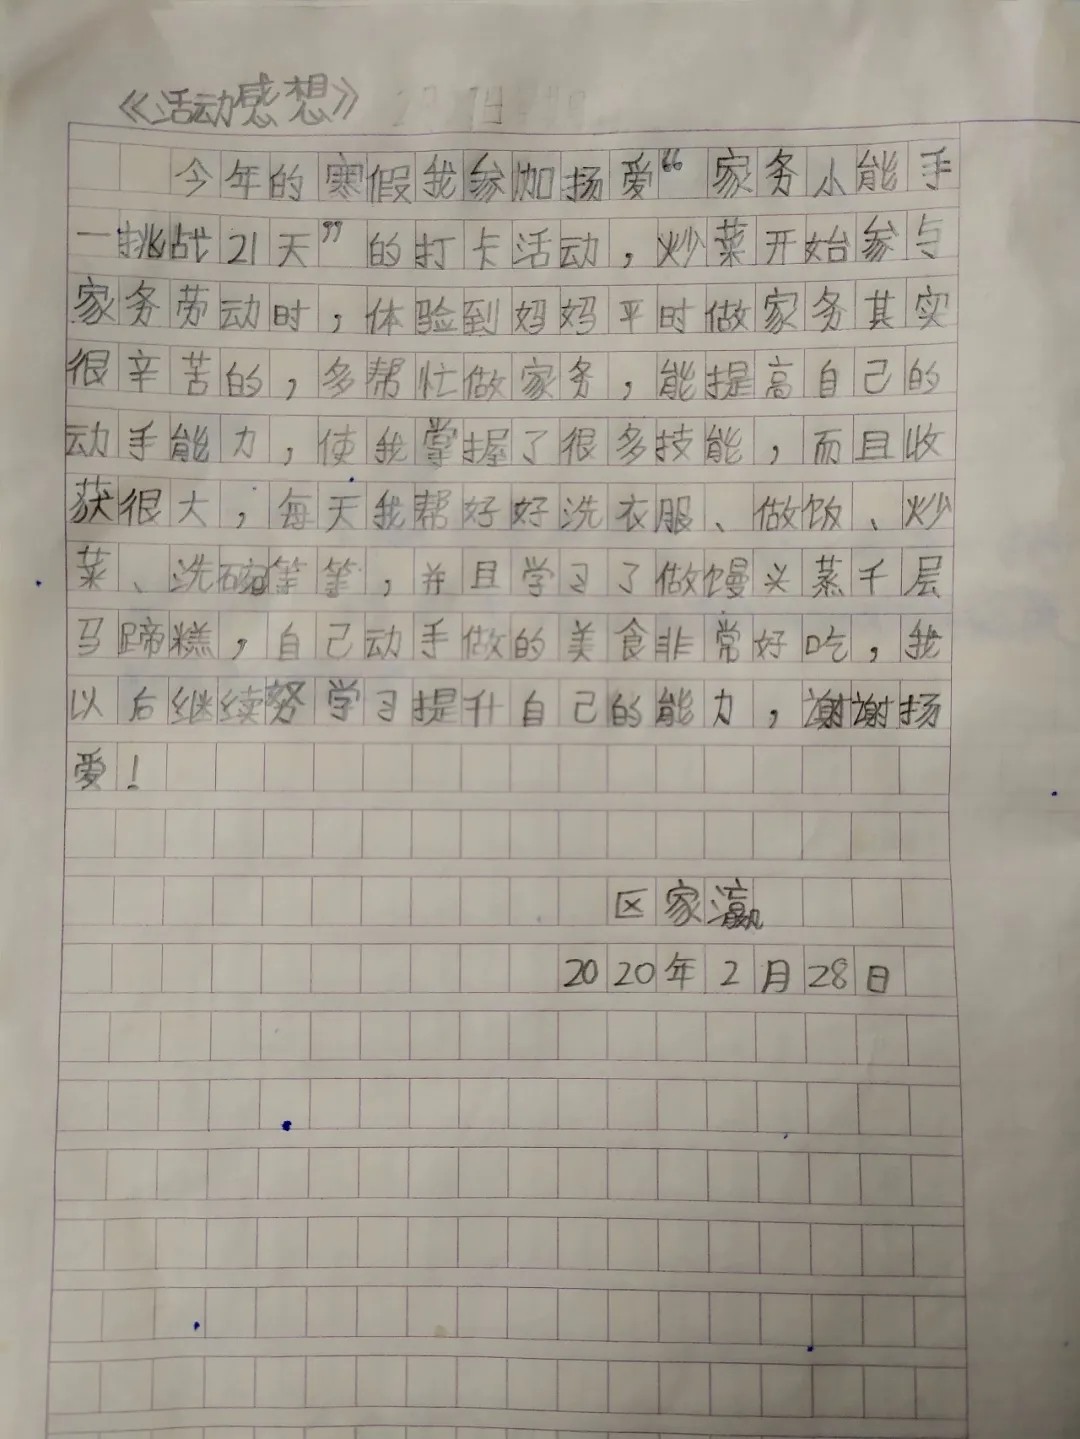 《活动感想》
今年的寒假我参加扬爱“家务小能手
一挑战21天”的打卡活动，炒菜开始参与
家务劳动时，体验到妈妈平时做家务其实
很辛苦的，多帮忙做家务，能提高自己的
动手能力，使我掌握了很多技能，而且收
获很大，每天我帮好好洗衣服、做饭、炒
菜、洗碗等等，并且学习了做馒头蒸千层
马蹄糕，自己动手做的美食非常好吃，我
以后继续努学习提升自己的能力，谢谢扬
爱！
区家瀛
2020年2月28日